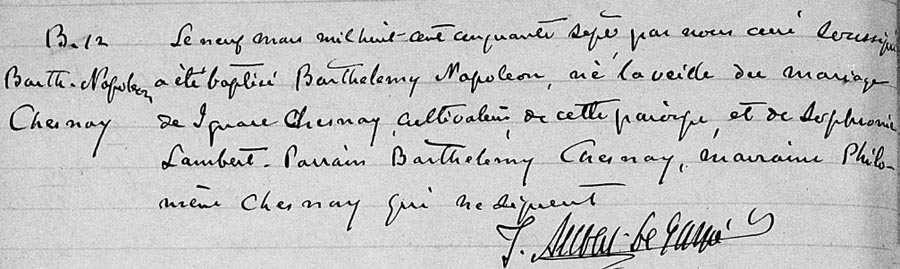 B. 12 Le neuf mars mil huit-cent cinquante sept par nous curé soussigné
Barth-Napoleon a été baptisé Barthelemy Napoleon, né la veille du mariage
Chesnay de Ignace Chesnay, cultivateur, de cette paroisse, et de Sophronie
Lambert. Parrain Barthelemy Chesnay, marraine Philo-
mène Chesnay qui ne signent
J.